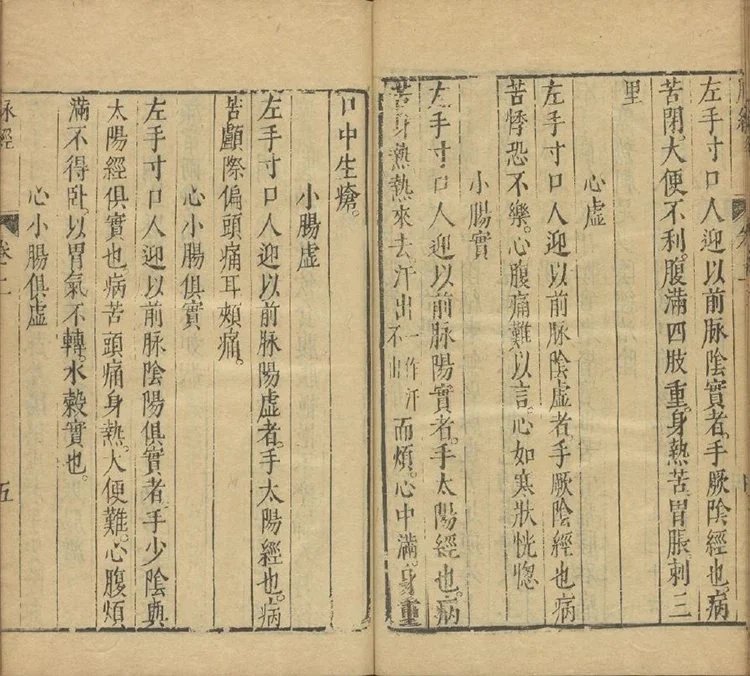 左手寸口人迎以前脉陰實者手厥陰經也病
苦閉大便不利腹滿四肢重身熱苦胃脹刺三
里
心虛
左手寸口人迎以前脉陰虛者手厥陰經也病
苦悸恐不樂心腹痛難以言心如寒狀恍惚
小腸實
左手寸口人迎以前脉陽實者手太陽經也病
苦身熱熱來去汗出一作汗不出而煩心中滿身重
口中生瘡
小腸虛
左手寸口人迎以前脉陽虛者手太陽經也病
苦顱際偏頭痛耳頰痛
心小腸俱實
左手寸口人迎以前脉陰陽俱實者手少陰與
太陽經俱實也病苦頭痛身熱大便難心腹煩
滿不得卧以胃氣不轉水穀實也
心小腸俱虛
脉經 卷二 五